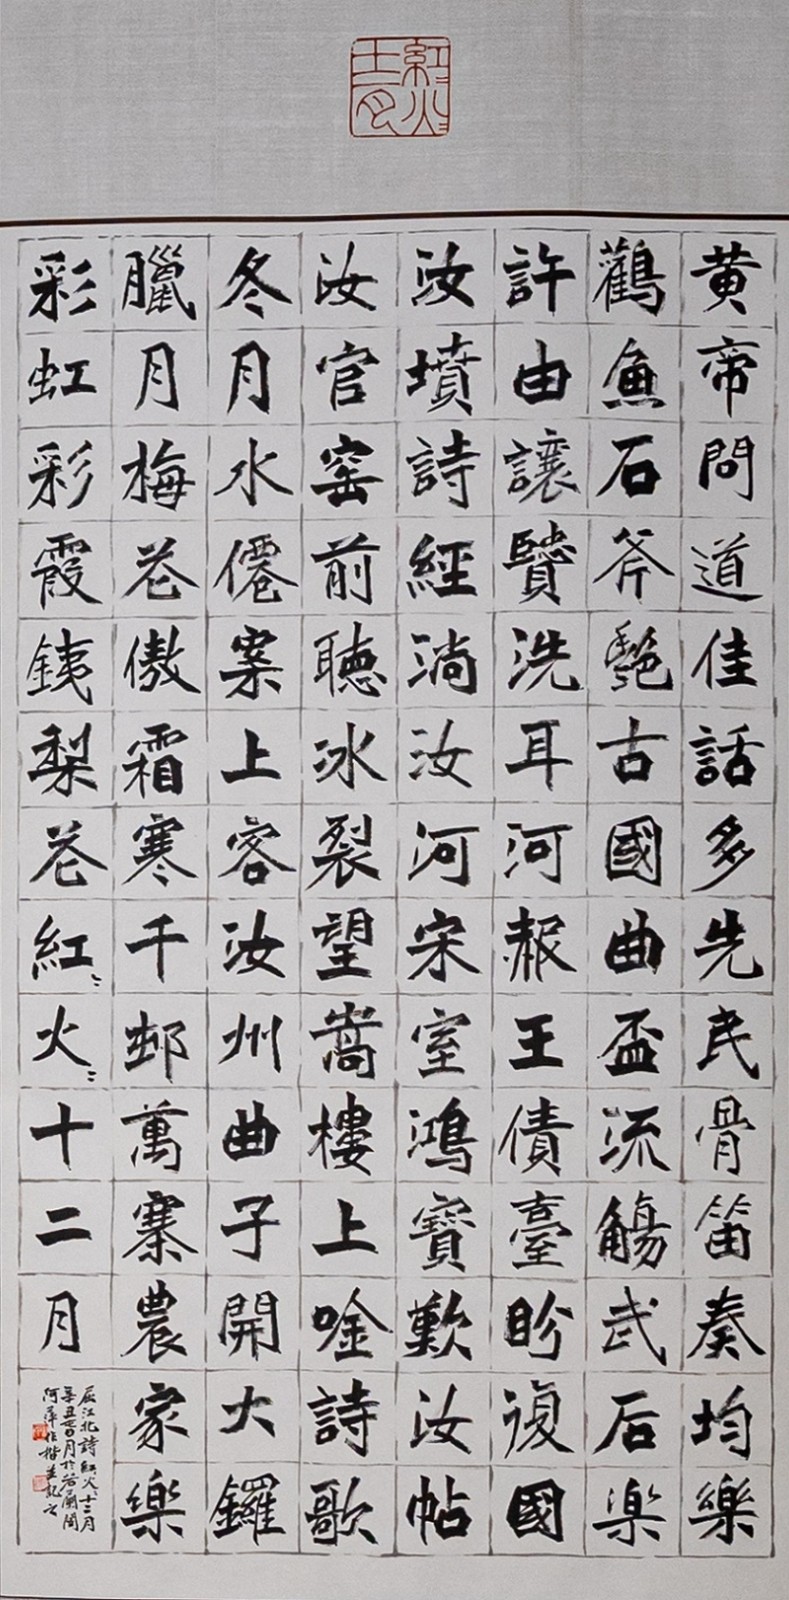 紅火十二月
黄帝問道佳話多先民骨笛奏均樂
鸛魚石斧艷古國曲盃流觴武后楽
許由讓賢洗耳河赧王債臺盼復國
汝墳詩經淌汝河宋室鴻寶歎汝帖
汝官窑前聽冰裂望嵩樓上唫詩歌
冬月水僊案上客汝州曲子開大鑼
臘月梅花傲霜寒千邨萬寨農家樂
彩虹彩霞銕梨花紅〻火〻十二月
屈江北詩紅火十二月
辛丑月於若蘭閣
阿萍作楷並記之